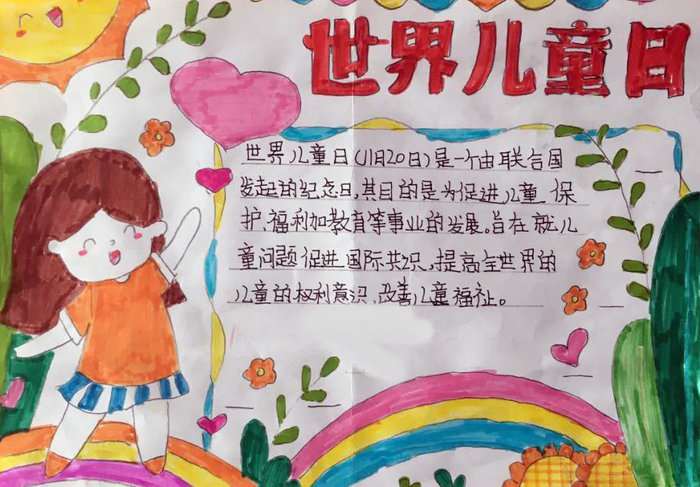 世界儿童日
世界儿童日(11月20日)是一个由联合国
发起的纪念日,其目的是为促进儿童保
护、福利和教育等事业的发展。旨在就儿
童问题促进国际共识,提高全世界的
儿童的权利意识、改善儿童福祉。